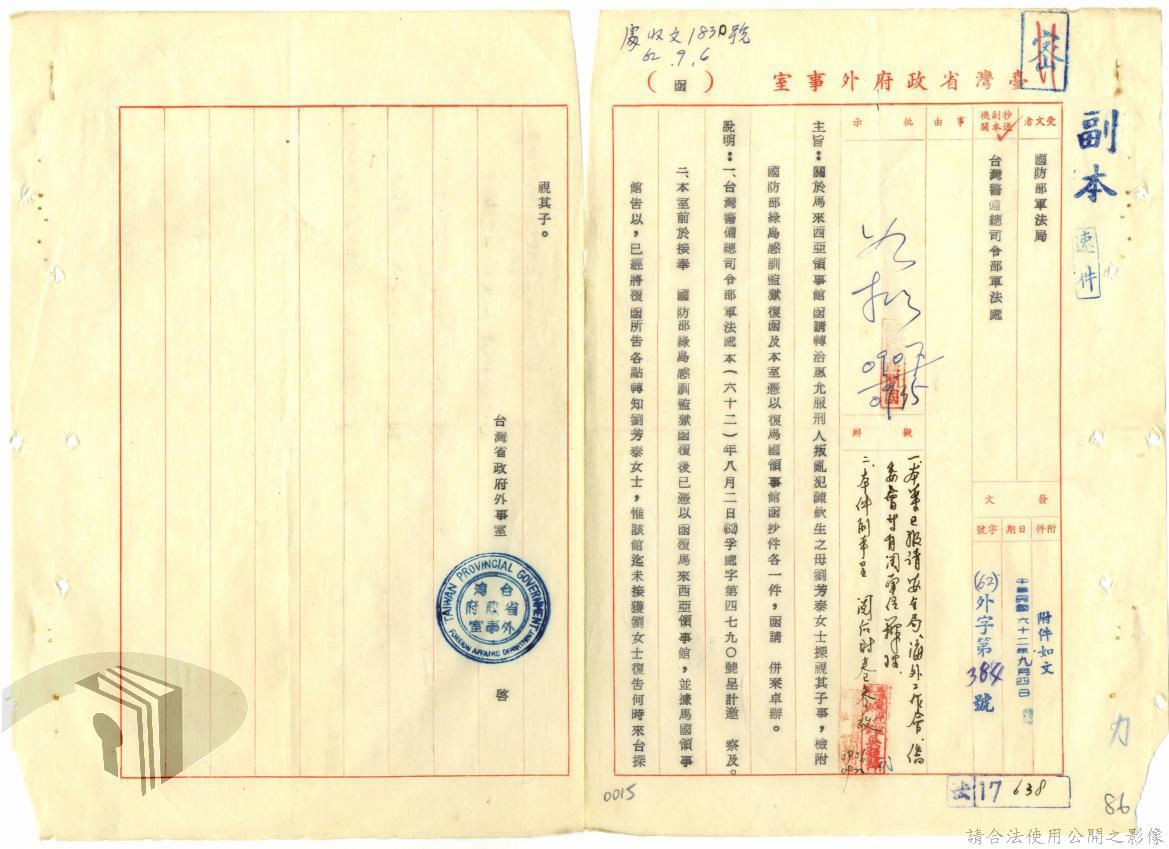 處收文1830號
62.9.6
密
臺灣省政府外事室
(函)
副本
速件
受文者
國防部軍法局
抄送副本機關
台灣警備總司令部軍法處
事由
批示
擬辦
一、本案已報請安全局、海外工作會、僑委會等有關單位辦理。
發文
附件
日期
字號
附件如文
中華民國六十二年九月四日
(62)外字第384號
主旨：關於馬來西亞領事館函請轉洽惠允服刑人叛亂犯陳欽生之母劉芳泰女士探視其子事，檢附
國防部綠島感訓監獄復函及本室憑以復馬國領事館函抄件各一件，函請　併案卓辦。
說明：一、台灣警備總司令部軍法處本(六十二)年八月二日(62)孚處字第四七九〇號呈計邀　察及。
二、本室前於接奉　國防部綠島感訓監獄函復後已憑以函覆馬來西亞領事館，並據馬國領事
館告以，已經將覆函所告各點轉知劉芳泰女士，惟該館迄未接獲劉女士復告何時來台探
視其子。
台灣省政府外事室
啓
TAIWAN PROVINCIAL GOVERNMENT
FOREIGN AFFAIRS DEPARTMENT
台灣省政府外事室
法 17 638
0015
86
請合法使用公開之影像